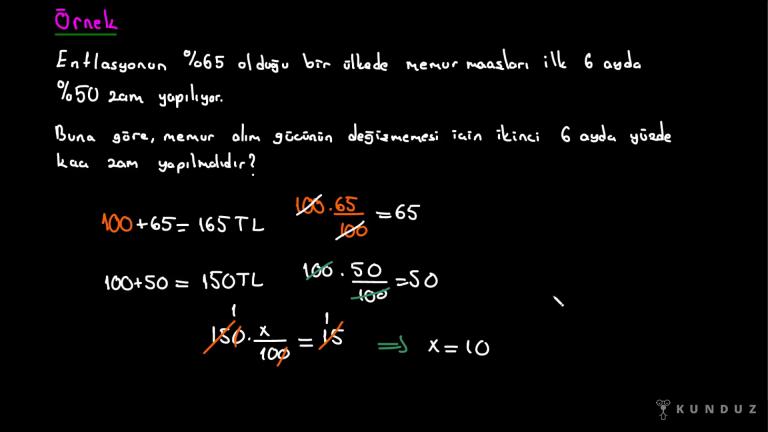 Örnek
Enflasyonun %65 olduğu bir ülkede memur maaşları ilk 6 ayda
%50 zam yapılıyor.
Buna göre, memur alım gücünün değişmemesi için ikinci 6 ayda yüzde
kaç zam yapılmalıdır?
100+65= 165 TL 100 . 65/100 = 65
100+50 = 150TL 100 . 50/100 = 50
150 . x/100 = 15 ⇒ x = 10
1 1
KUNDUZ